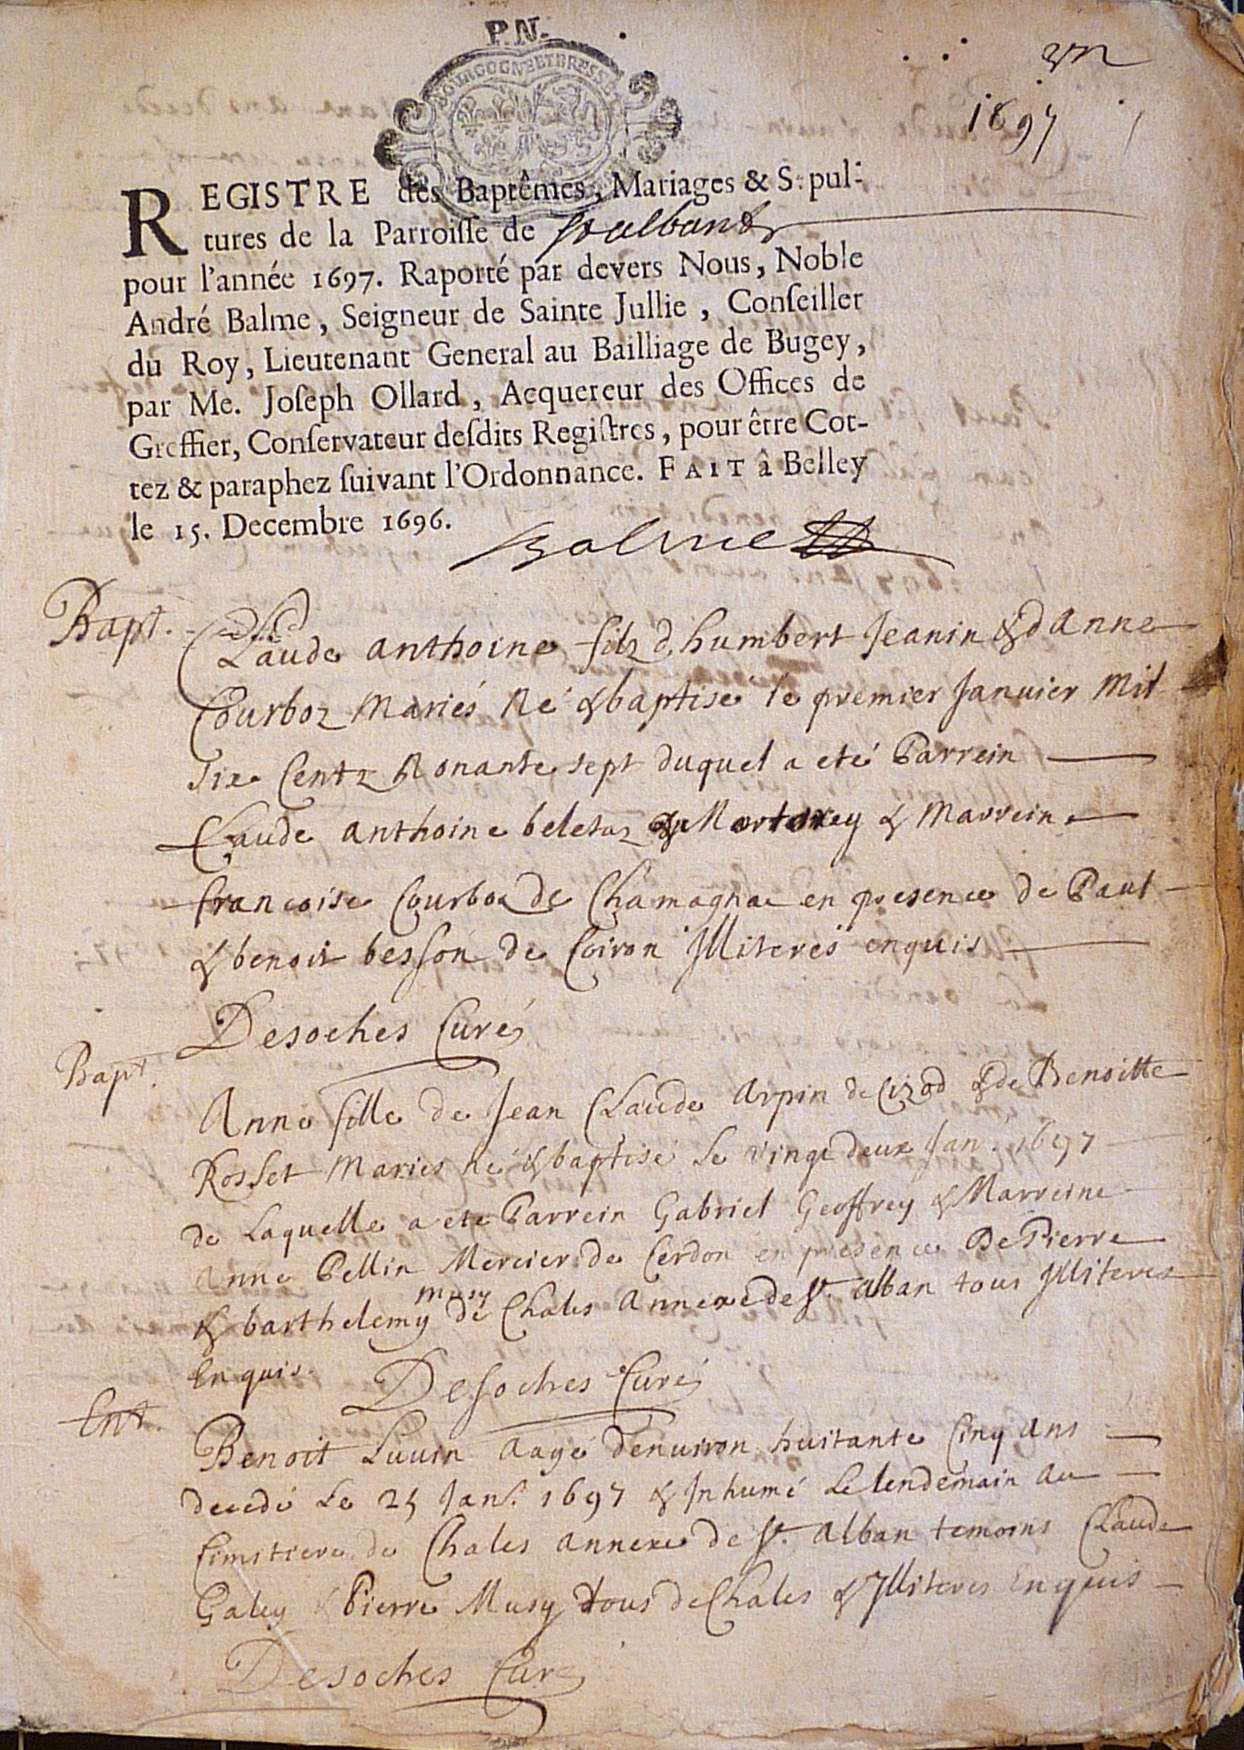 P.N.
BOURGOGNE ET BRESSE
1697
REGISTRE des Baptêmes, Mariages & Sepul-
tures de la Parroisse de St alban
pour l'année 1697. Raporté par devers Nous, Noble
André Balme, Seigneur de Sainte Jullie, Conseiller
du Roy, Lieutenant General au Bailliage de Bugey,
par Me. Joseph Ollard, Acquereur des Offices de
Greffier, Conservateur desdits Registres, pour être Cot-
tez & paraphez suivant l'Ordonnance. FAIT â Belley
le 15. Decembre 1696.
Balme
Bapt.
Claude anthoine filz d'humbert Jeanin & d'anne
Courboz Mariés Né & baptisé le premier Janvier Mil
Six Centz Nonante sept duquel a eté Parrein
Claude anthoine & Marreine
francoise Courboz de Chamagna en presence de Paul
& benoit besson de Coiron Jlliterés enquis
Desoches Curé
Bapt.
Anne fille de Jean Claude Arpin de Cizod & de Benoitte
Rosset Mariés né & baptisé le vingt deux Jan. 1697
de Laquelle a eté Parrein Gabriel Geoffrey & Marreine
Anne Pellin Mercier de Cerdon en presence De Pierre
& barthelemy musy de Chales Annexe de St. alban tous Jlliteres
Enquis
Desoches Curé
Ent.
Benoit Luvin Aagé d'enuiron huitante Cinq ans
decedé Le 25 Janv. 1697 & Jnhumé Le lendemain Au
Cimitiere de Chales annexe de St. Alban temoins Claude
Galey & Pierre Musy tous de Chales & Jlliteres Enquis
Desoches Curé